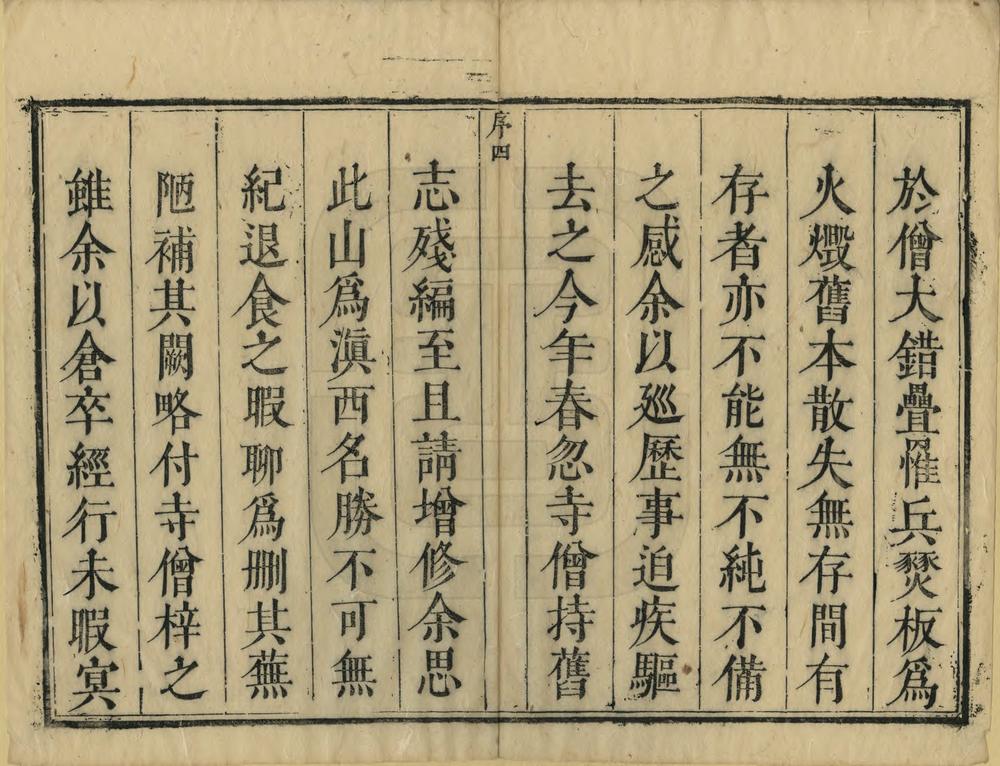 於僧大錯疊罹兵燹板爲
火燬舊本散失無存間有
存者亦不能無不純不備
之感余以廵歷事迫疾驅
去之今年春忽寺僧持舊
序四
志殘編至且請增修余思
此山爲滇西名勝不可無
紀退食之暇聊爲刪其蕪
陋補其闕略付寺僧梓之
雖余以倉卒經行未暇㝠